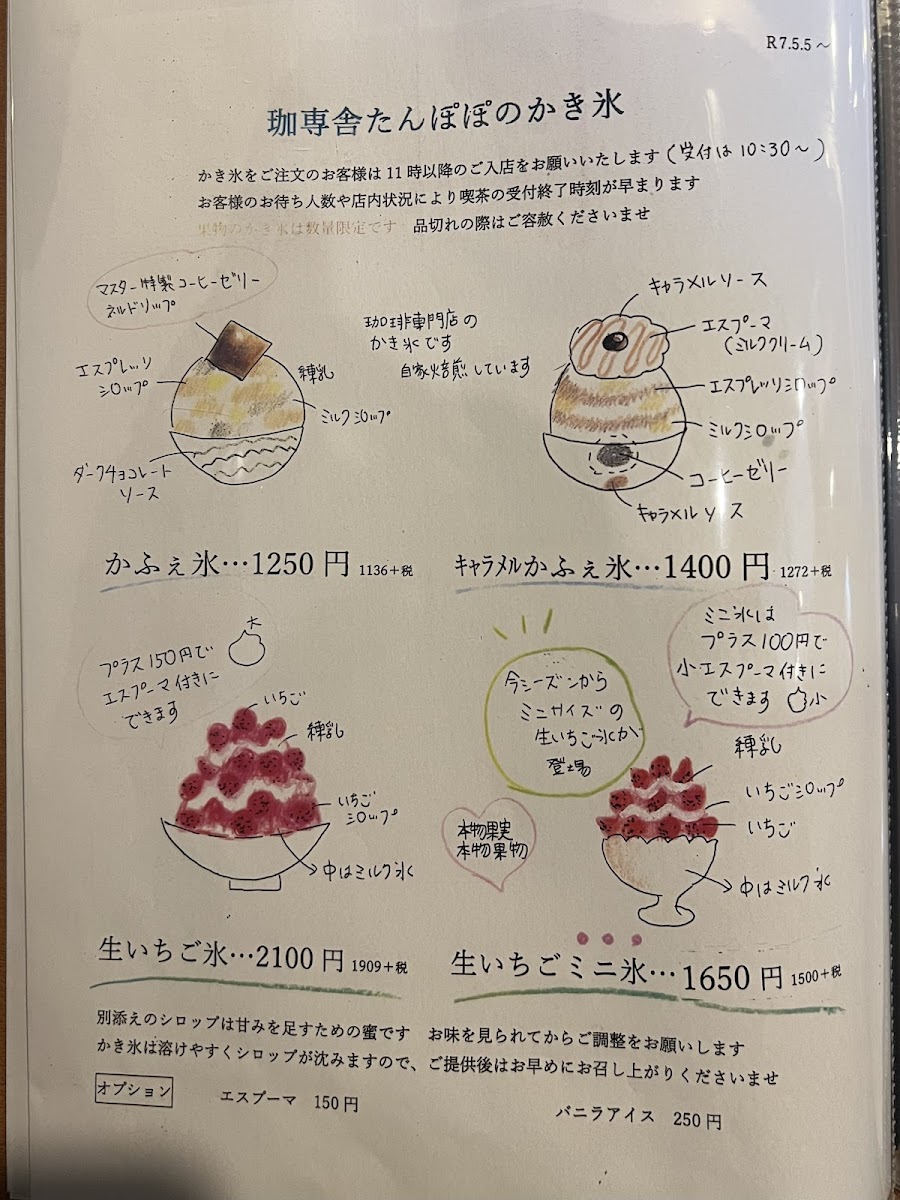 R7.5.5～
珈専舎たんぽぽのかき氷
かき氷をご注文のお客様は11時以降のご入店をお願いいたします(受付は10:30～)
お客様のお待ち人数や店内状況により喫茶の受付終了時刻が早まります
果物のかき氷は数量限定です 品切れの際はご容赦くださいませ
マスター特製コーヒーゼリー
ネルドリップ
エスプレッソ
シロップ
練乳
ミルクシロップ
ダークチョコレート
ソース
珈琲専門店の
かき氷です
自家焙煎しています
キャラメルソース
エスプーマ
(ミルククリーム)
エスプレッソシロップ
ミルクシロップ
コーヒーゼリー
キャラメルソース
かふぇ氷…1250円 1136+税
キャラメルかふぇ氷…1400円 1272+税
プラス150円で
大
エスプーマ付きに
できます
いちご
練乳
いちご
シロップ
中はミルク氷
今シーズンから
ミニサイズの
生いちご氷が
登場
ミニ氷は
プラス100円で
小エスプーマ付きに
できます 小
本物果実
本物果物
練乳
いちごシロップ
いちご
中はミルク氷
生いちご氷…2100円 1909+税
生いちごミニ氷…1650円 1500+税
別添えのシロップは甘みを足すための蜜です お味を見られてからご調整をお願いします
かき氷は溶けやすくシロップが沈みますので、ご提供後はお早めにお召し上がりくださいませ
オプション エスプーマ 150円 バニラアイス 250円